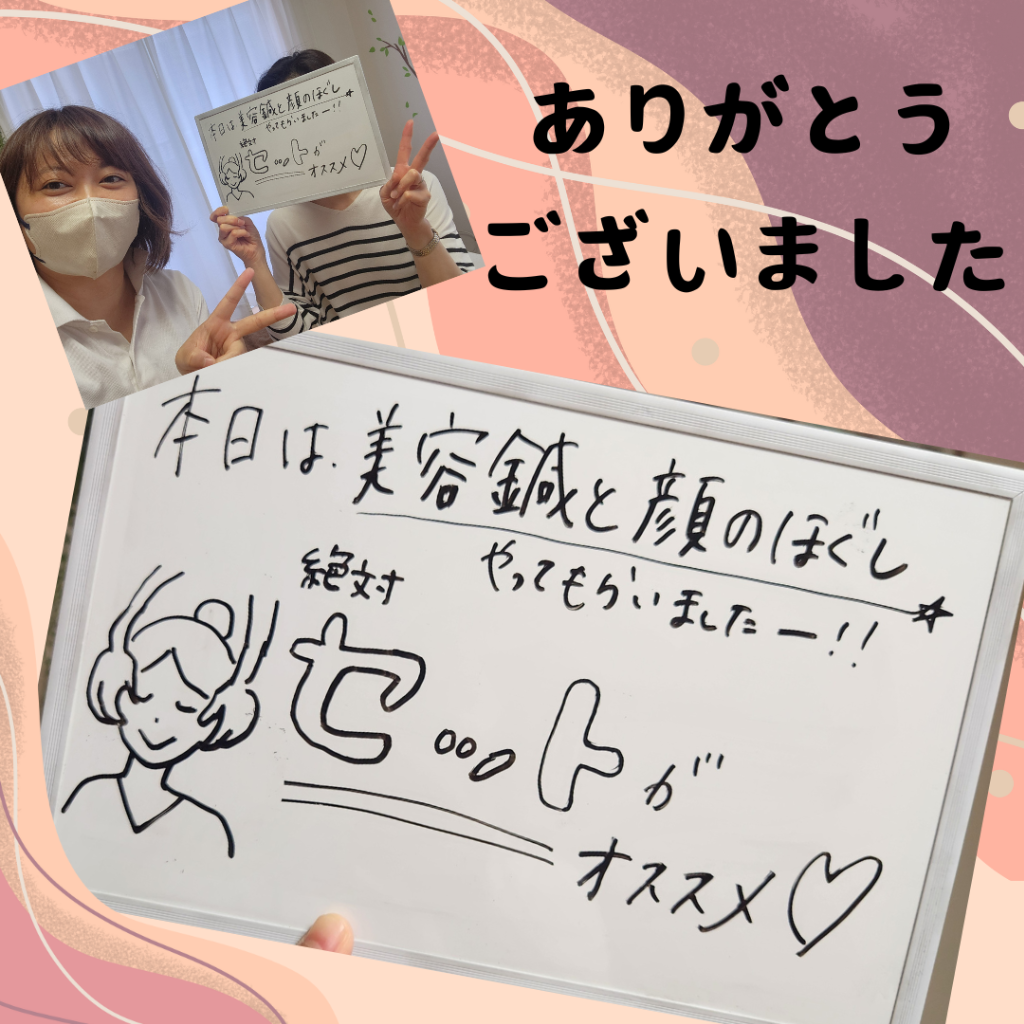 ありがとう
ございました
本日は美容鍼と顔のほぐし
やってもらいましたー!!
絶対
セットが
オススメ♡
本日は、美容鍼と顔のほぐし☆
やってもらいましたー!!
絶対
セットが
オススメ♡